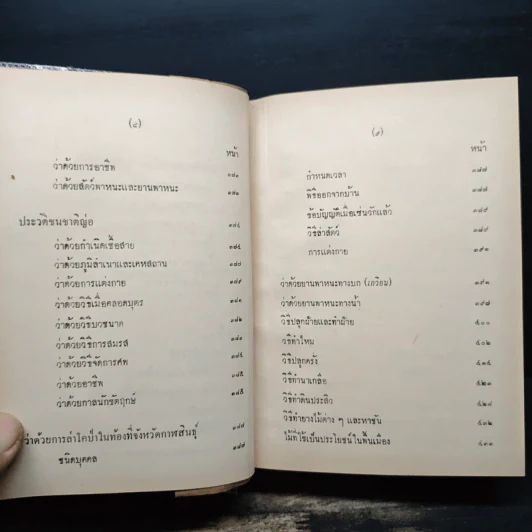 (๘)
หน้า
ว่าด้วยการอาชีพ
ว่าด้วยสัตว์พาหนะและยานพาหนะ
ประวัติชนชาติญ่อ
ว่าด้วยกำเนิดเชื้อสาย
ว่าด้วยภูมิลำเนาและเคหสถาน
ว่าด้วยการแต่งกาย
ว่าด้วยวิธีเมื่อคลอดบุตร
ว่าด้วยวิธีบวชนาค
ว่าด้วยวิธีการสมรส
ว่าด้วยวิธีจัดการศพ
ว่าด้วยอาชีพ
ว่าด้วยกาลนักขัตฤกษ์
ว่าด้วยการล่าโคป่าในท้องที่จังหวัดกาฬสินธุ์ ๔๘๗
ชนิดบุคคล ๔๘๗
(๙)
หน้า
กำหนดเวลา
พิธีออกจากบ้าน
ข้อบัญญัติเมื่อเซ่นวักแล้ว
วิธีล่าสัตว์
การแต่งกาย
ว่าด้วยยานพาหนะทางบก (เกวียน)
ว่าด้วยยานพาหนะทางน้ำ
วิธีปลูกฝ้ายและทำฝ้าย ๕๐๐
วิธีทำไหม
วิธีปลูกครั่ง
วิธีทำนาเกลือ
วิธีทำดินประสิว
วิธีทำยางไม้ต่าง ๆ และหาชัน
ไม้ที่ใช้เป็นประโยชน์ในพื้นเมือง